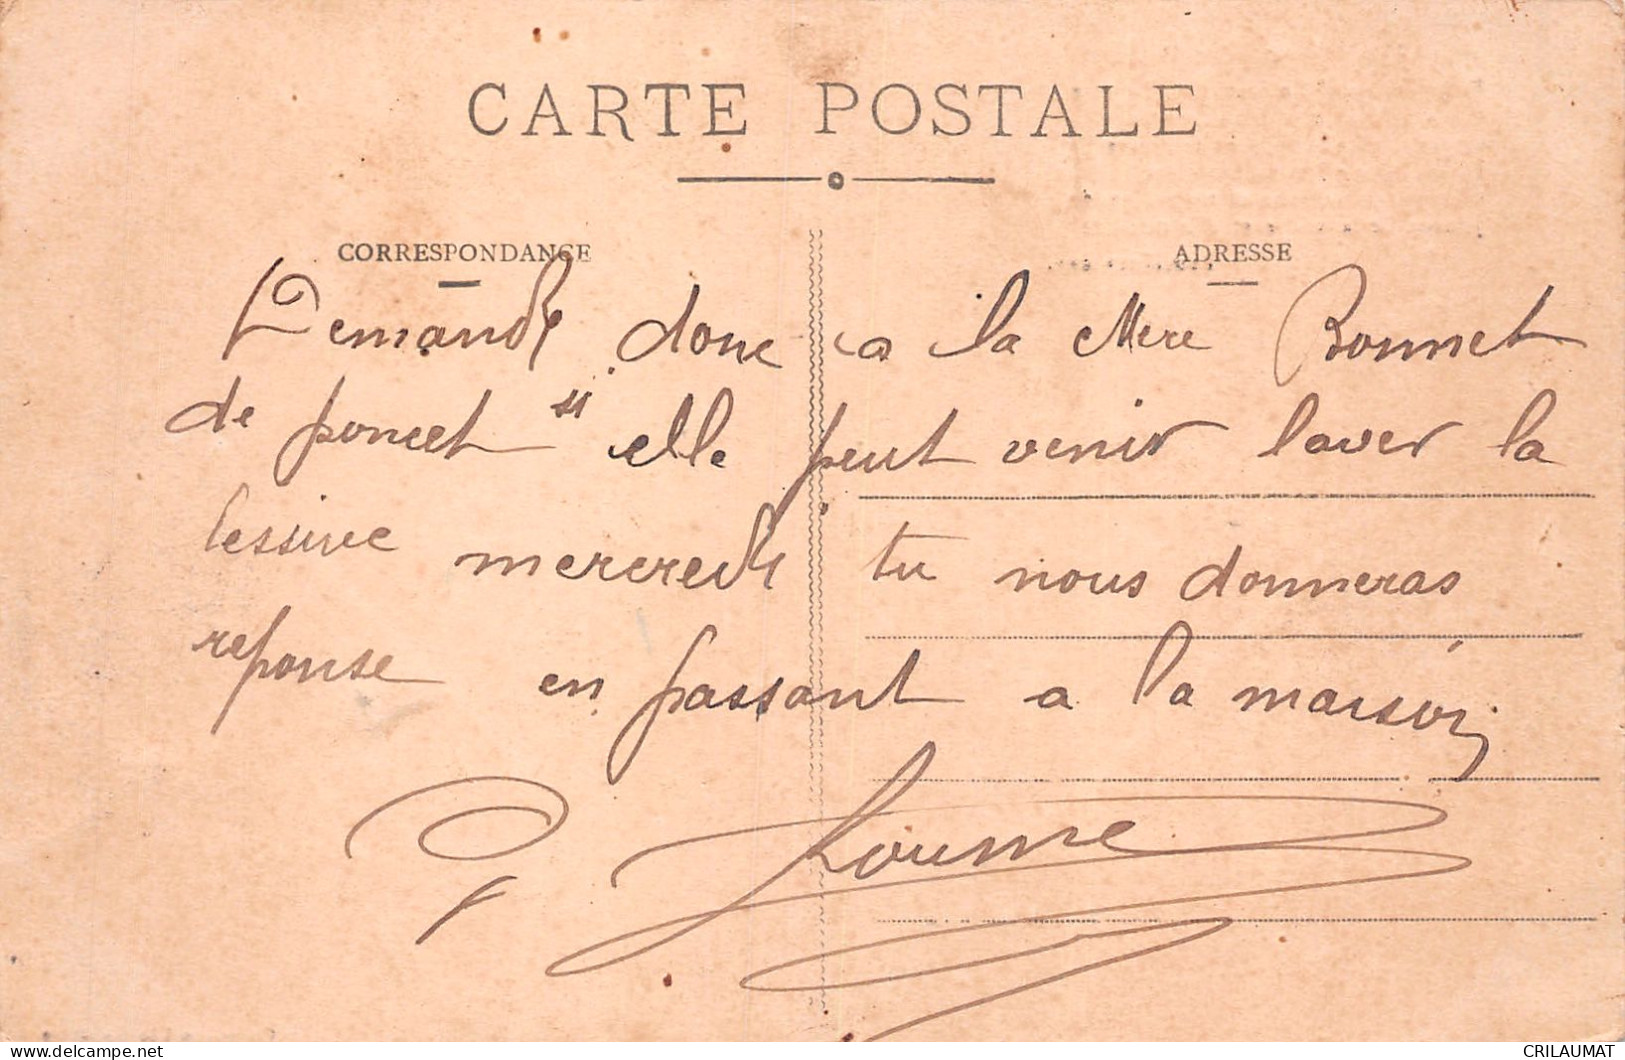 CARTE POSTALE
CORRESPONDANCE
ADRESSE
Demande donc a la Mere Bonnet
de poncet si elle peut venir laver la
lessive mercredi tu nous donneras
reponse en passant a la maison
www.delcampe.net
CRILAUMAT